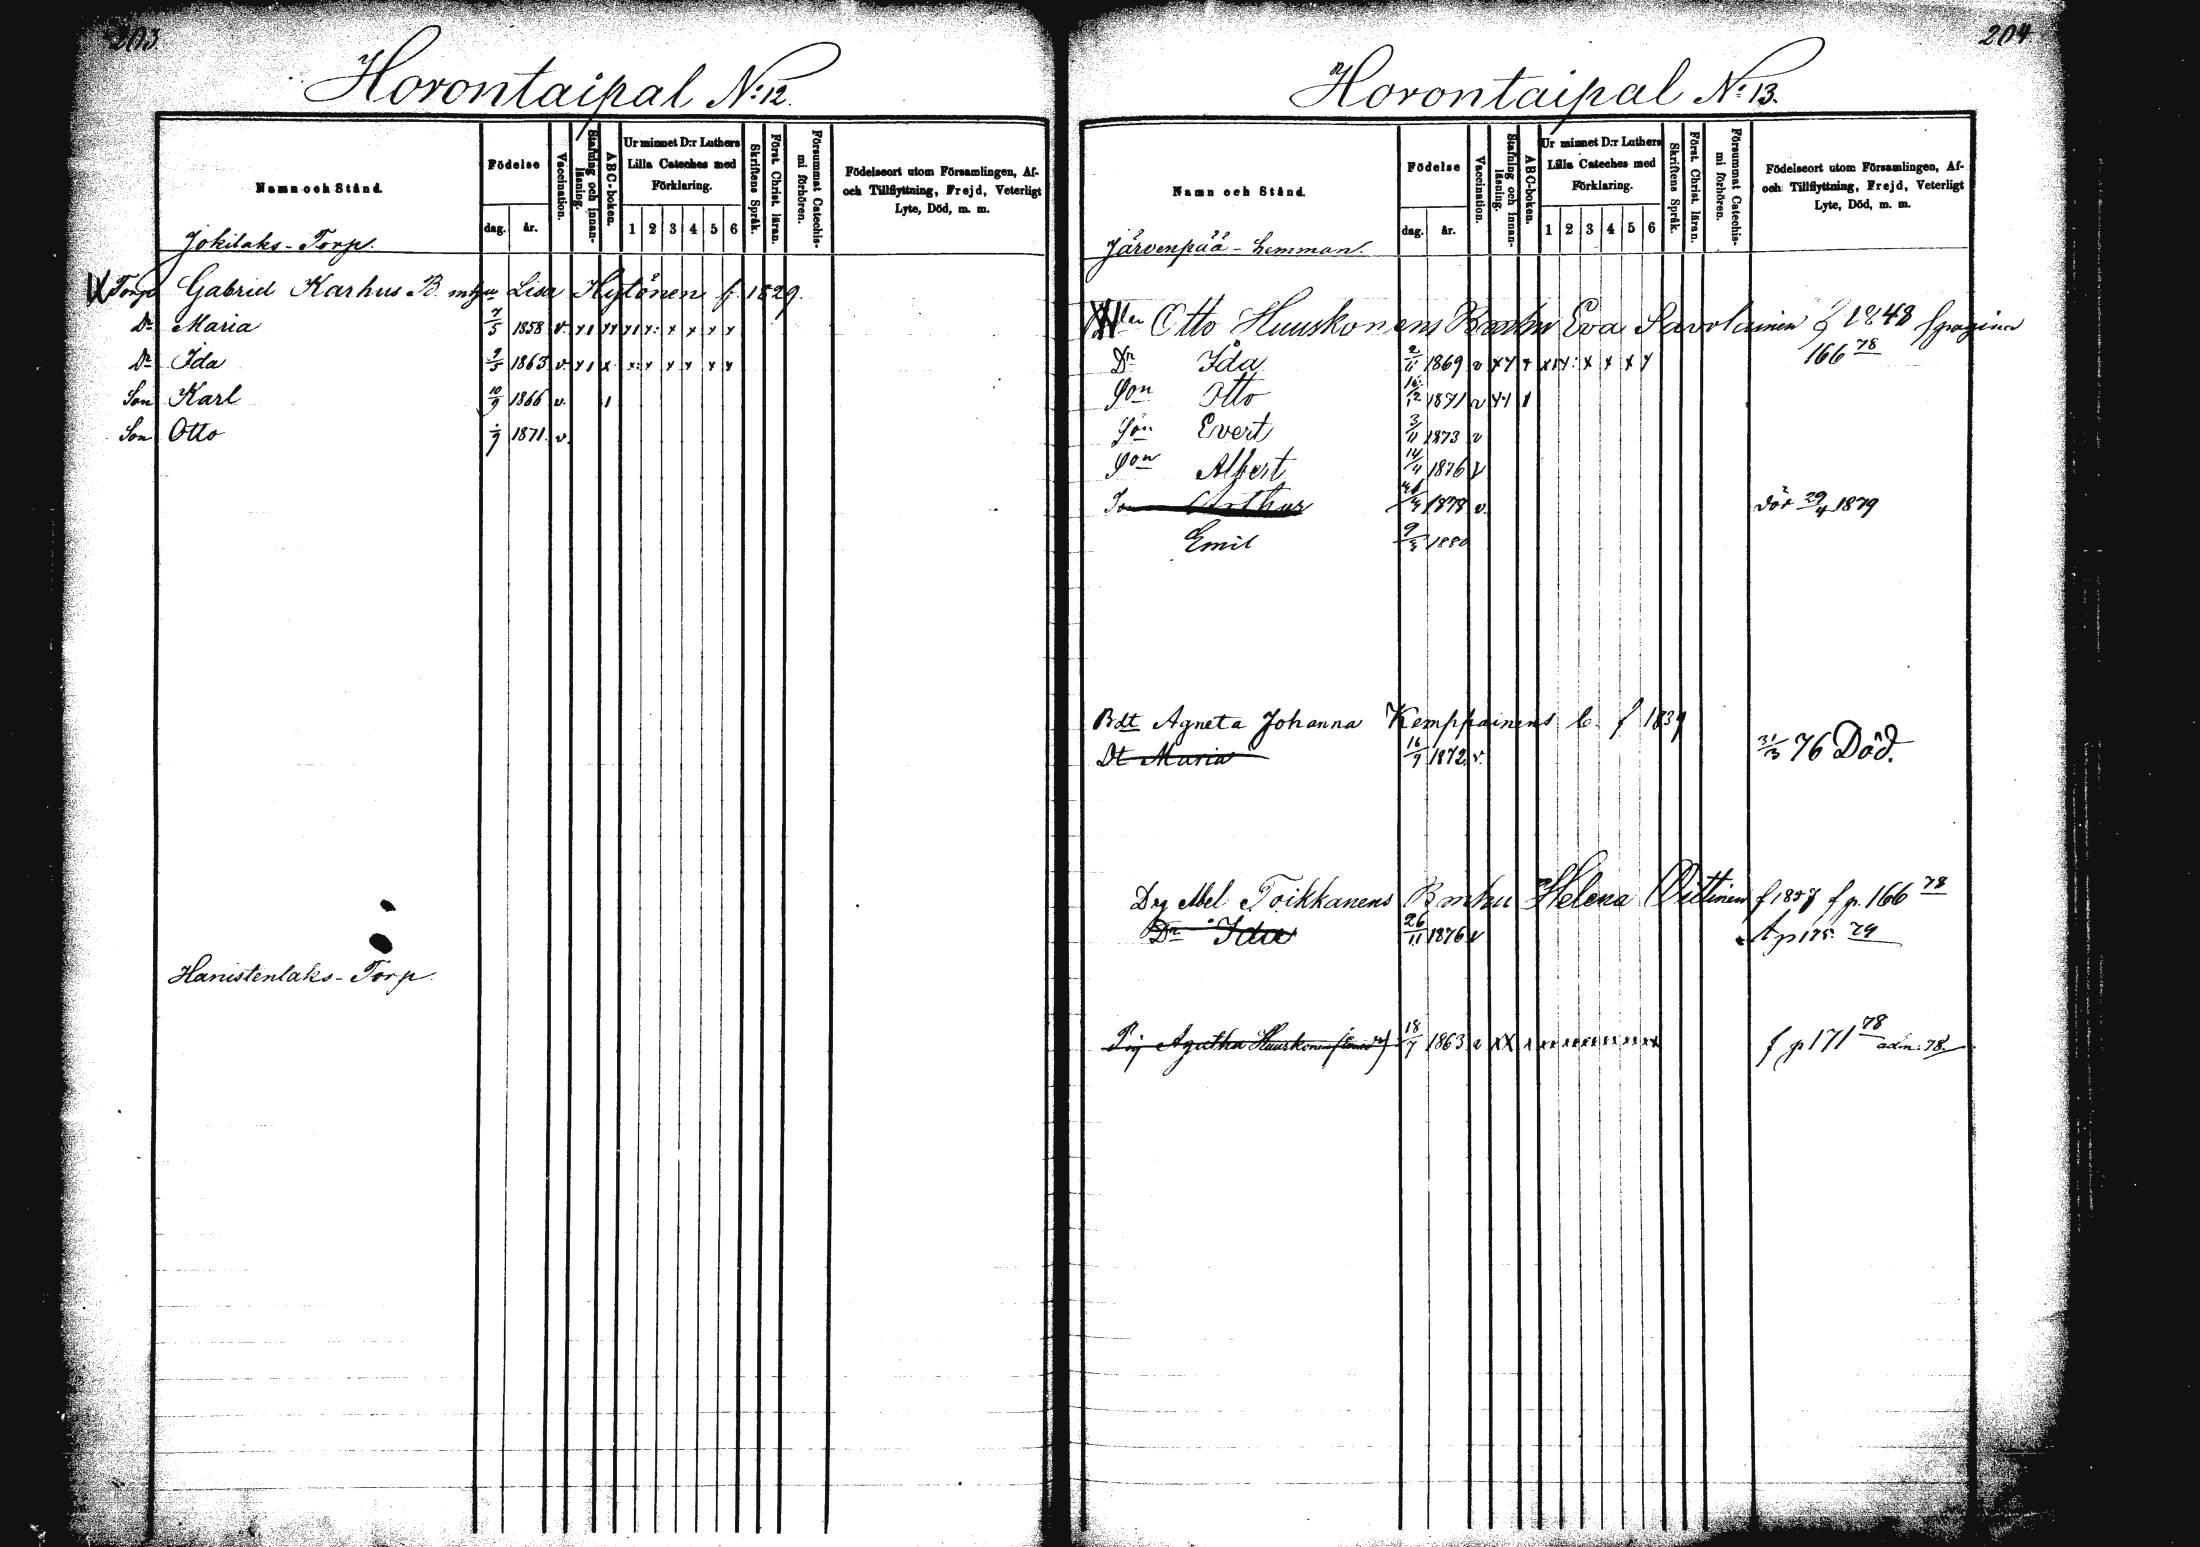 203
Horontaipal N:12.
Namn och Stånd.
Födelse
dag.
år.
Vaccination.
Stafning och innanläsning.
ABC-boken.
Ur minnet D:r Luthers Lilla Cateches med Förklaring.
1 2 3 4 5 6
Skriftens Språk.
Först. Christ. läran.
Försummat Catechismi förhören.
Födelseort utom Församlingen, Af- och Tillflyttning, Frejd, Veterligt Lyte, Död, m. m.
Jokilaks-Torp.
Torp Gabriel Karhus B. Lisa Hytönen f. 1829.
Dr Maria 7/5 1858 v.
Dr Ida 9/5 1863 v.
Son Karl 10/9 1866 v.
Son Otto /9 1871. v.
Hanistenlaks-Torp.
204
Horontaipal N:13.
Namn och Stånd.
Födelse
dag.
år.
Vaccination.
Stafning och innanläsning.
ABC-boken.
Ur minnet D:r Luthers Lilla Cateches med Förklaring.
1 2 3 4 5 6
Skriftens Språk.
Först. Christ. läran.
Försummat Catechismi förhören.
Födelseort utom Församlingen, Af- och Tillflyttning, Frejd, Veterligt Lyte, Död, m. m.
Järvenpää-hemman.
Otto Huuskonens Eva Savolainen f 1848 f pagina
166 78
Dr Ida 2/11 1869 v
Son Otto 16/12 1871 v
Son Evert 3/11 1873 v
Son Albert 14/4 1876 v
Son Arthur 1878 v. dör 29/4 1879
Emil 9/3 1880
Bdt Agneta Johanna Kemppainens b. f 1839
Dt Maria 16/9 1872. v. 31/3 76 Död.
Drg Abel Toikkanens Bmhu Helena f 1857 f p. 166 78
Dr Ida 26/11 1876 v p 175 79
Pig Agatha Huuskonen 18/7 1863 v f p 171 78 adm: 78.